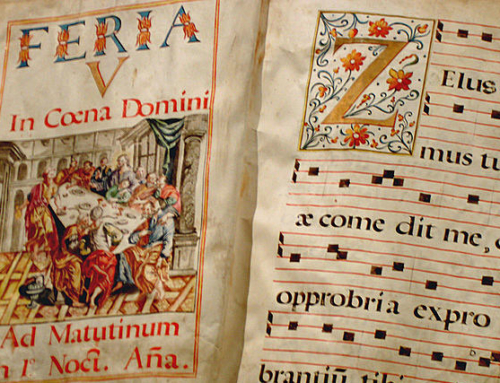 FERIA
V
In Cœna Domini
Ad Matutinum
n 1º Noct. Aña.
ZElus
mus tu
æ come dit me,
opprobria expro
brantiũ tibi